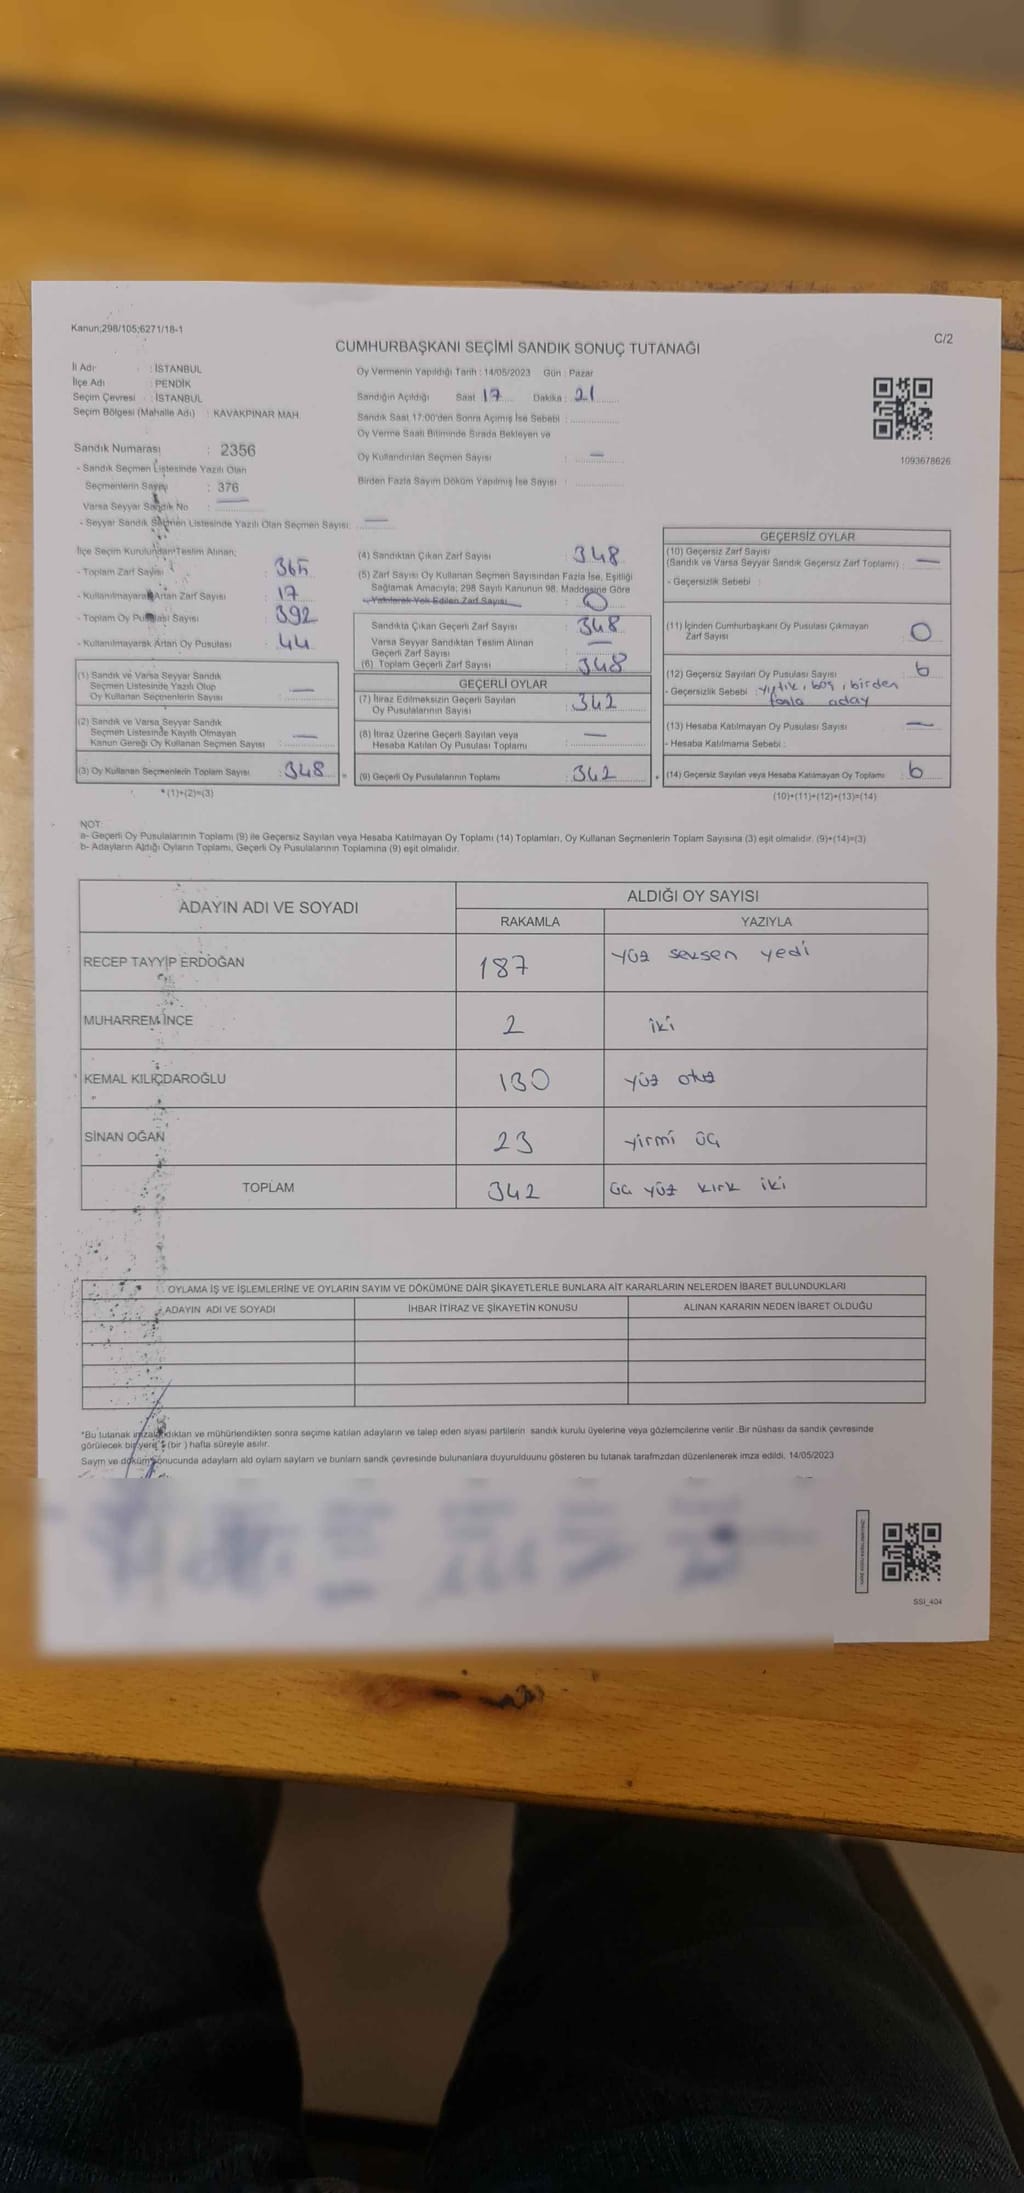 Kanun;298/105;6271/18-1
C/2
CUMHURBAŞKANI SEÇİMİ SANDIK SONUÇ TUTANAĞI
İl Adı : İSTANBUL
İlçe Adı : PENDİK
Seçim Çevresi : İSTANBUL
Seçim Bölgesi (Mahalle Adı) : KAVAKPINAR MAH.
Sandık Numarası : 2356
- Sandık Seçmen Listesinde Yazılı Olan
Seçmenlerin Sayısı : 376
Varsa Seyyar Sandık No : —
- Seyyar Sandık Seçmen Listesinde Yazılı Olan Seçmen Sayısı: —
Oy Vermenin Yapıldığı Tarih : 14/05/2023 Gün : Pazar
Sandığın Açıldığı Saat 17 Dakika : 21
Sandık Saat 17:00'den Sonra Açılmış İse Sebebi :
Oy Verme Saati Bitiminde Sırada Bekleyen ve
Oy Kullandırılan Seçmen Sayısı : —
Birden Fazla Sayım Döküm Yapılmış İse Sayısı :
1093678626
İlçe Seçim Kurulundan Teslim Alınan;
- Toplam Zarf Sayısı : 365
- Kullanılmayarak Artan Zarf Sayısı : 17
- Toplam Oy Pusulası Sayısı : 392
- Kullanılmayarak Artan Oy Pusulası : 44
(1) Sandık ve Varsa Seyyar Sandık
Seçmen Listesinde Yazılı Olup
Oy Kullanan Seçmenlerin Sayısı : —
(2) Sandık ve Varsa Seyyar Sandık
Seçmen Listesinde Kayıtlı Olmayan
Kanun Gereği Oy Kullanan Seçmen Sayısı : —
(3) Oy Kullanan Seçmenlerin Toplam Sayısı : 348
*(1)+(2)=(3)
(4) Sandıktan Çıkan Zarf Sayısı : 348
(5) Zarf Sayısı Oy Kullanan Seçmen Sayısından Fazla İse, Eşitliği
Sağlamak Amacıyla; 298 Sayılı Kanunun 98. Maddesine Göre
Yakılarak Yok Edilen Zarf Sayısı : 0
Sandıkta Çıkan Geçerli Zarf Sayısı : 348
Varsa Seyyar Sandıktan Teslim Alınan
Geçerli Zarf Sayısı : —
(6) Toplam Geçerli Zarf Sayısı : 348
GEÇERLİ OYLAR
(7) İtiraz Edilmeksizin Geçerli Sayılan
Oy Pusulalarının Sayısı : 342
(8) İtiraz Üzerine Geçerli Sayılan veya
Hesaba Katılan Oy Pusulası Toplamı : —
(9) Geçerli Oy Pusulalarının Toplamı : 342
GEÇERSİZ OYLAR
(10) Geçersiz Zarf Sayısı
(Sandık ve Varsa Seyyar Sandık Geçersiz Zarf Toplamı) : —
- Geçersizlik Sebebi :
(11) İçinden Cumhurbaşkanı Oy Pusulası Çıkmayan
Zarf Sayısı : 0
(12) Geçersiz Sayılan Oy Pusulası Sayısı : 6
- Geçersizlik Sebebi : yırtık, boş, birden
fazla aday
(13) Hesaba Katılmayan Oy Pusulası Sayısı : —
- Hesaba Katılmama Sebebi :
(14) Geçersiz Sayılan veya Hesaba Katılmayan Oy Toplamı : 6
(10)+(11)+(12)+(13)=(14)
NOT:
a- Geçerli Oy Pusulalarının Toplamı (9) ile Geçersiz Sayılan veya Hesaba Katılmayan Oy Toplamı (14) Toplamları, Oy Kullanan Seçmenlerin Toplam Sayısına (3) eşit olmalıdır. (9)+(14)=(3)
b- Adayların Aldığı Oyların Toplamı, Geçerli Oy Pusulalarının Toplamına (9) eşit olmalıdır.
ADAYIN ADI VE SOYADI
ALDIĞI OY SAYISI
RAKAMLA YAZIYLA
RECEP TAYYİP ERDOĞAN 187 yüz seksen yedi
MUHARREM İNCE 2 iki
KEMAL KILIÇDAROĞLU 130 yüz otuz
SİNAN OĞAN 23 yirmi üç
TOPLAM 342 üç yüz kırk iki
OYLAMA İŞ VE İŞLEMLERİNE VE OYLARIN SAYIM VE DÖKÜMÜNE DAİR ŞİKAYETLERLE BUNLARA AİT KARARLARIN NELERDEN İBARET BULUNDUKLARI
ADAYIN ADI VE SOYADI İHBAR İTİRAZ VE ŞİKAYETİN KONUSU ALINAN KARARIN NEDEN İBARET OLDUĞU
*Bu tutanak imzalandıktan ve mühürlendikten sonra seçime katılan adayların ve talep eden siyasi partilerin sandık kurulu üyelerine veya gözlemcilerine verilir .Bir nüshası da sandık çevresinde
görülecek bir yere (bir ) hafta süreyle asılır.
Saym ve döküm sonucunda adaylarn ald oylarn saylarn ve bunlarn sandk çevresinde bulunanlara duyurulduunu gösteren bu tutanak tarafmzdan düzenlenerek imza edildi. 14/05/2023
SSİ_404